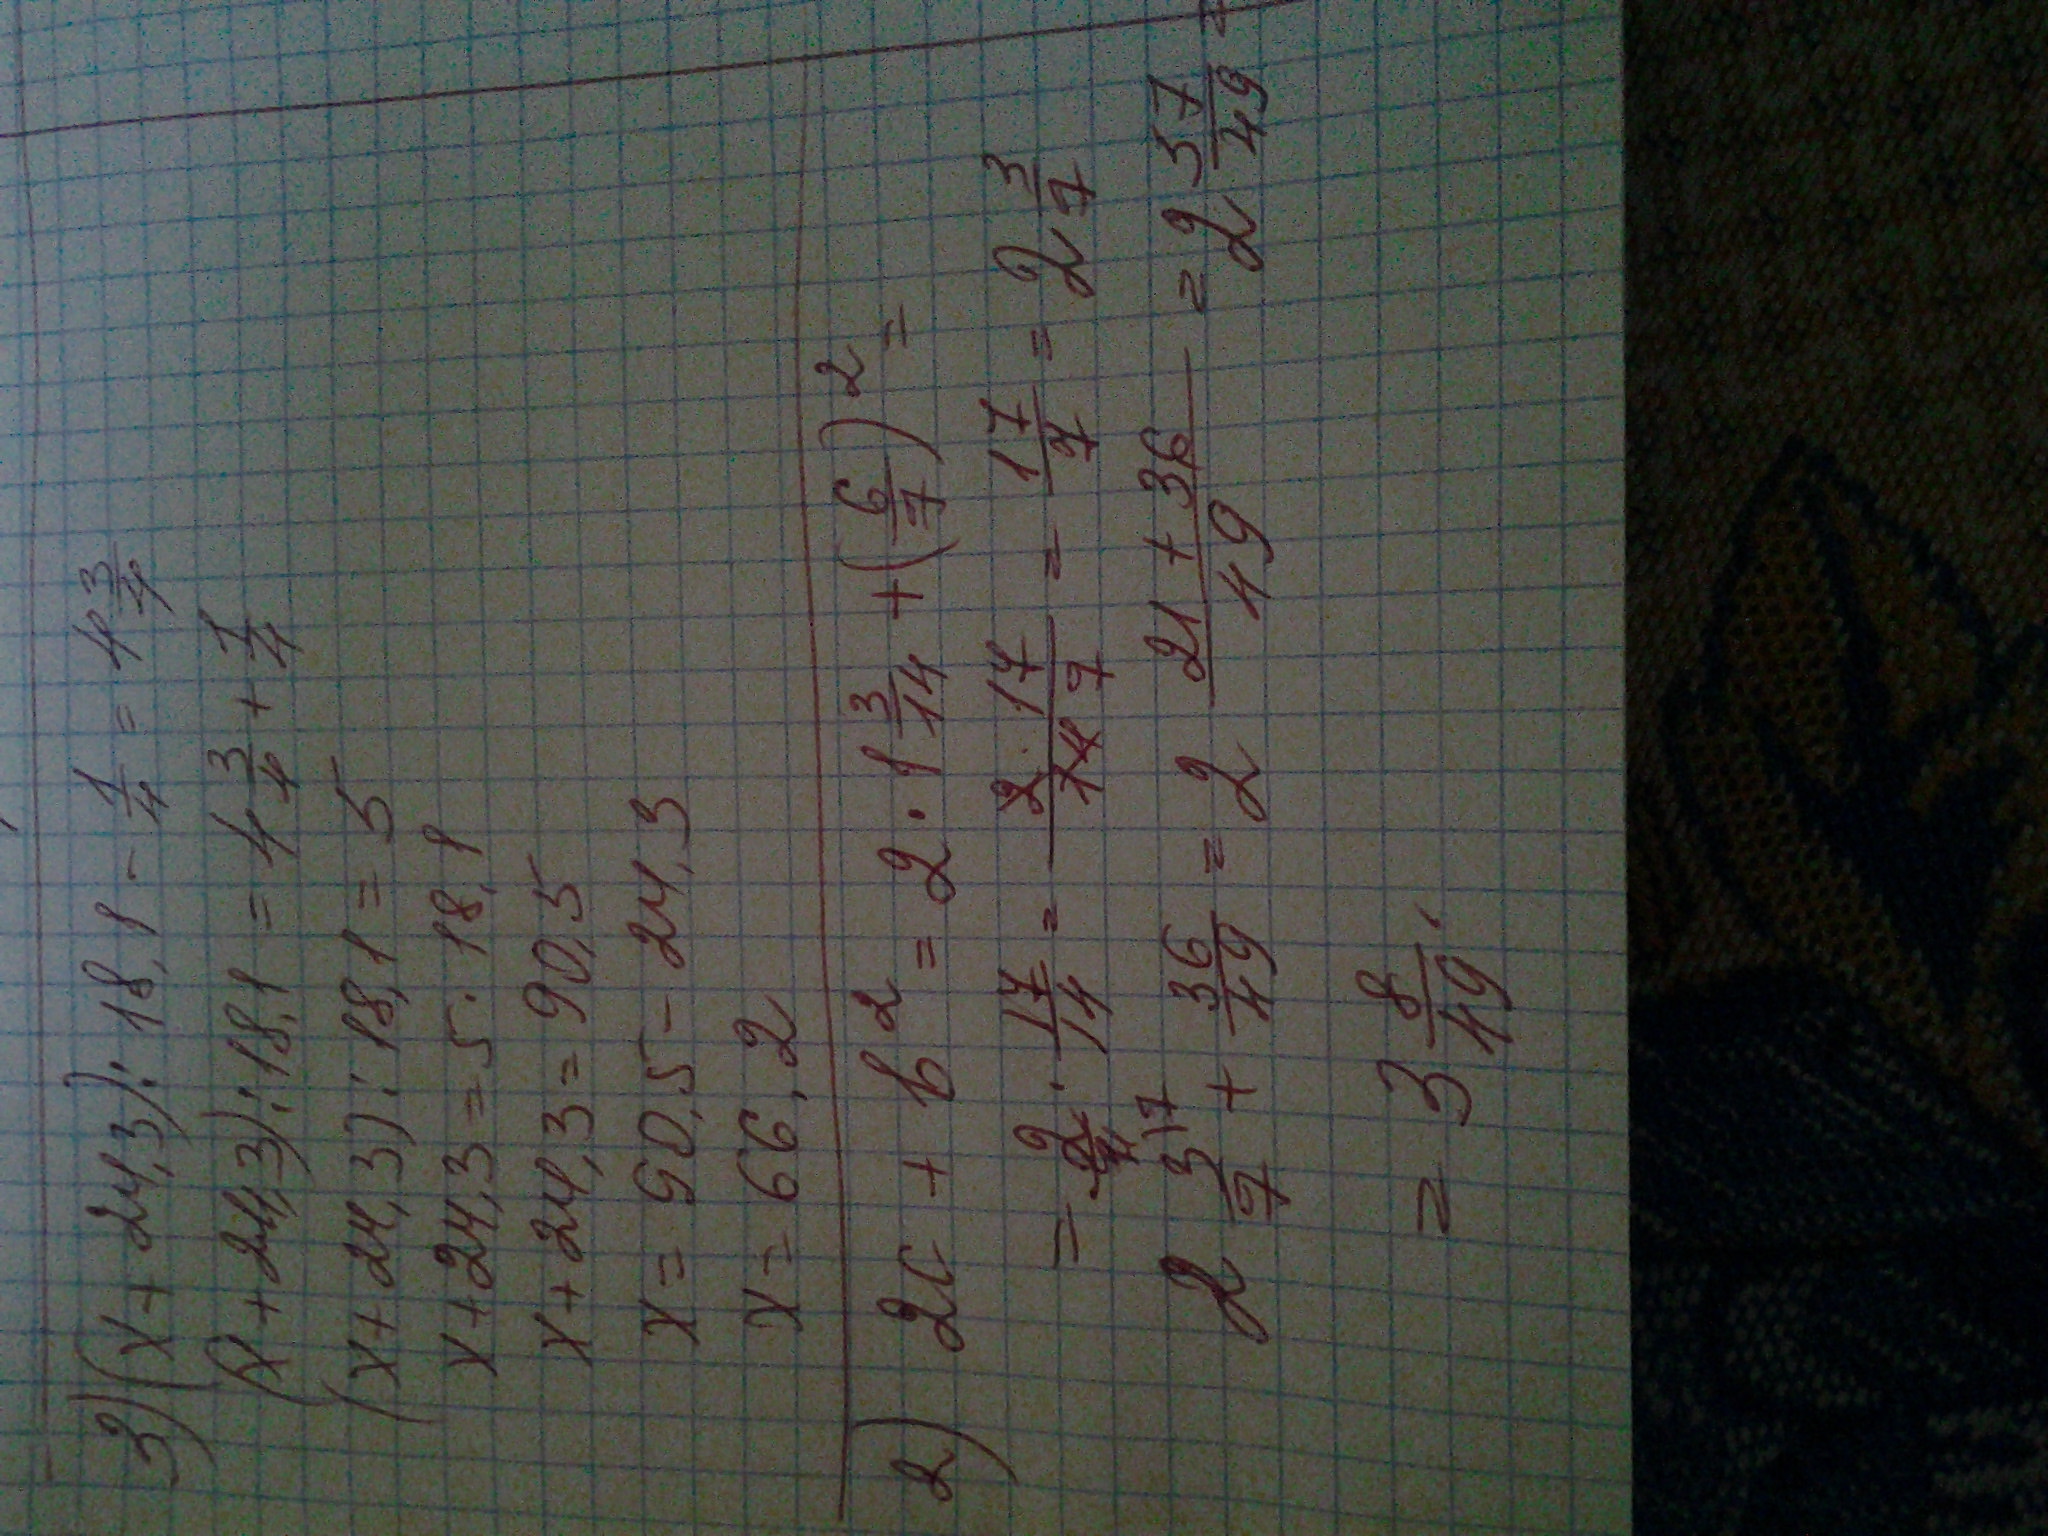 3) (x + 24,3) : 18,1 - 1/4 = 4 3/4
(x + 24,3) : 18,1 = 4 3/4 + 1/4
(x + 24,3) : 18,1 = 5
x + 24,3 = 5 · 18,1
x + 24,3 = 90,5
x = 90,5 - 24,3
x = 66,2
2) 2c + b² = 2 · 1 3/14 + (6/7)² =
= 2 · 17/14 = 2 · 17/14 7 = 17/7 = 2 3/7
2 3/7 17 + 36/49 = 2 21 + 36/49 = 2 57/49 =
= 3 8/49